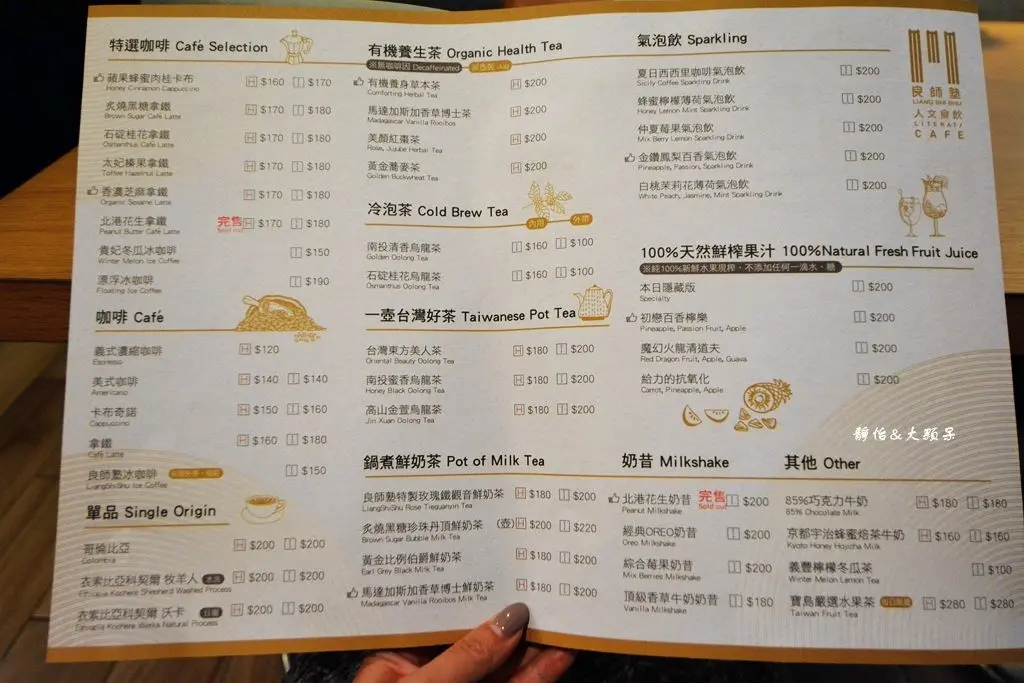 特選咖啡 Café Selection
蘋果蜂蜜肉桂卡布 H $160 I $170
Honey Cinnamon Cappuccino
炙燒黑糖拿鐵 H $170 I $180
Brown Sugar Café Latte
石碇桂花拿鐵 H $170 I $180
Osmanthus Café Latte
太妃榛果拿鐵 H $170 I $180
Toffee Hazelnut Latte
香濃芝麻拿鐵 H $170 I $180
Organic Sesame Latte
北港花生拿鐵 完售 H $170 I $180
Peanut Butter Café Latte Sold out
貴妃冬瓜冰咖啡 I $150
Winter Melon Ice Coffee
漂浮冰咖啡 I $190
Floating Ice Coffee
咖啡 Café
義式濃縮咖啡 H $120
Espresso
美式咖啡 H $140 I $140
Americano
卡布奇諾 H $150 I $160
Cappuccino
拿鐵 H $160 I $180
Café Latte
良師塾冰咖啡 I $150
LiangShiShu Ice Coffee
單品 Single Origin
哥倫比亞 H $200 I $200
Colombia
衣索比亞科契爾 牧羊人 水洗 H $200 I $200
Ethiopia Kochere Shepherd Washed Process
衣索比亞科契爾 沃卡 日曬 H $200 I $200
Ethiopia Kochere Werka Natural Process
有機養生茶 Organic Health Tea
※無咖啡因 Decaffeinated
有機養身草本茶 H $200
Comforting Herbal Tea
馬達加斯加香草博士茶 H $200
Madagascar Vanilla Rooibos
美顏紅棗茶 H $200
Rose, Jujube Herbal Tea
黃金蕎麥茶 H $200
Golden Buckwheat Tea
冷泡茶 Cold Brew Tea 內用 外帶
南投清香烏龍茶 I $160 I $100
Golden Oolong Tea
石碇桂花烏龍茶 I $160 I $100
Osmanthus Oolong Tea
一壺台灣好茶 Taiwanese Pot Tea
台灣東方美人茶 H $180 I $200
Oriental Beauty Oolong Tea
南投蜜香烏龍茶 H $180 I $200
Honey Black Oolong Tea
高山金萱烏龍茶 H $180 I $200
Jin Xuan Oolong Tea
鍋煮鮮奶茶 Pot of Milk Tea
良師塾特製玫瑰鐵觀音鮮奶茶 H $180 I $200
LiangShiShu Rose Tieguanyin Tea
炙燒黑糖珍珠丹頂鮮奶茶 (壺) H $200 I $220
Brown Sugar Bubble Milk Tea
黃金比例伯爵鮮奶茶 H $180 I $200
Earl Grey Black Milk Tea
馬達加斯加香草博士鮮奶茶 H $180 I $200
Madagascar Vanilla Rooibos Milk Tea
氣泡飲 Sparkling
夏日西西里咖啡氣泡飲 I $200
Sicily Coffee Sparkling Drink
蜂蜜檸檬薄荷氣泡飲 I $200
Honey Lemon Mint Sparkling Drink
仲夏莓果氣泡飲 I $200
Mix Berry Lemon Sparkling Drink
金鑽鳳梨百香氣泡飲 I $200
Pineapple, Passion, Sparkling Drink
白桃茉莉花薄荷氣泡飲 I $200
White Peach, Jasmine, Mint Sparkling Drink
良師塾
LIANG SHI SHU
人文食飲
LITERATI
CAFE
100%天然鮮榨果汁 100%Natural Fresh Fruit Juice
※純100%新鮮水果現榨，不添加任何一滴水、糖
本日隱藏版 I $200
Specialty
初戀百香檸樂 I $200
Pineapple, Passion Fruit, Apple
魔幻火龍清道夫 I $200
Red Dragon Fruit, Apple, Guava
給力的抗氧化 I $200
Carrot, Pineapple, Apple
靜怡&大顆呆
奶昔 Milkshake
北港花生奶昔 完售 I $200
Peanut Milkshake Sold out
經典OREO奶昔 I $200
Oreo Milkshake
綜合莓果奶昔 I $200
Mix Berries Milkshake
頂級香草牛奶奶昔 I $180
Vanilla Milkshake
其他 Other
85%巧克力牛奶 H $180 I $180
85% Chocolate Milk
京都宇治蜂蜜焙茶牛奶 H $160 I $160
Kyoto Honey Hojicha Milk
義豐檸檬冬瓜茶 I $100
Winter Melon Lemon Tea
寶島嚴選水果茶 H $280 I $280
Taiwan Fruit Tea